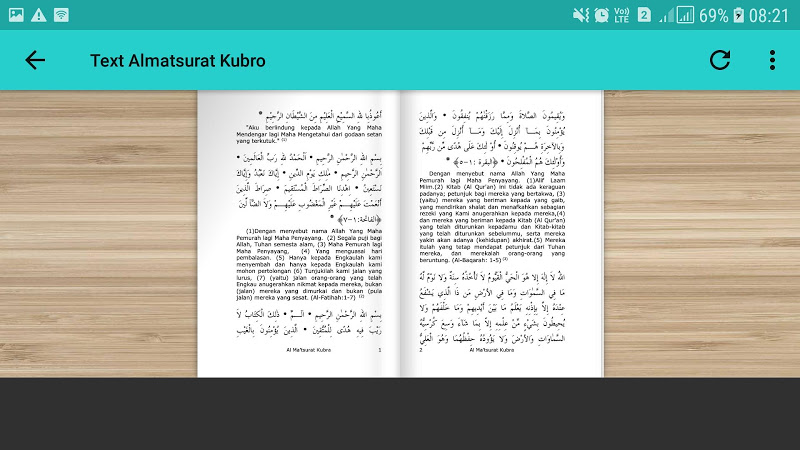 Vo))
LTE
2
69%
08:21
Text Almatsurat Kubro
أَعُوذُ بِاللهِ السَّمِيْعِ الْعَلِيْمِ مِنَ الشَّيْطَانِ الرَّجِيْمِ *
"Aku berlindung kepada Allah Yang Maha
Mendengar lagi Maha Mengetahui dari godaan setan
yang terkutuk." (1)
بِسْمِ اللهِ الرَّحْمٰنِ الرَّحِيمِ • اَلْحَمْدُ لِلّٰهِ رَبِّ الْعَالَمِينَ •
الرَّحْمٰنِ الرَّحِيمِ • مٰلِكِ يَوْمِ الدِّينِ • إِيَّاكَ نَعْبُدُ وَإِيَّاكَ
نَسْتَعِينُ • اِهْدِنَا الصِّرَاطَ الْمُسْتَقِيمَ • صِرَاطَ الَّذِينَ
أَنْعَمْتَ عَلَيْهِمْ غَيْرِ الْمَغْضُوبِ عَلَيْهِمْ وَلَا الضَّآلِّينَ
﴿الفاتحة:١-٧﴾ *
(1)Dengan menyebut nama Allah Yang Maha
Pemurah lagi Maha Penyayang. (2) Segala puji bagi
Allah, Tuhan semesta alam, (3) Maha Pemurah lagi
Maha Penyayang, (4) Yang menguasai hari
pembalasan. (5) Hanya kepada Engkaulah kami
menyembah dan hanya kepada Engkaulah kami
mohon pertolongan (6) Tunjukilah kami jalan yang
lurus, (7) (yaitu) jalan orang-orang yang telah
Engkau anugerahkan nikmat kepada mereka, bukan
(jalan) mereka yang dimurkai dan bukan (pula
jalan) mereka yang sesat. (Al-Fatihah:1-7) (2)
بِسْمِ اللهِ الرَّحْمٰنِ الرَّحِيمِ • الٓـمٓ • ذٰلِكَ الْكِتَابُ لَا
رَيْبَ فِيهِ هُدًى لِلْمُتَّقِينَ • الَّذِينَ يُؤْمِنُونَ بِالْغَيْبِ
Al Ma'tsurat Kubro 1
وَيُقِيمُونَ الصَّلَاةَ وَمِمَّا رَزَقْنَاهُمْ يُنْفِقُونَ • وَالَّذِينَ
يُؤْمِنُونَ بِمَا أُنْزِلَ إِلَيْكَ وَمَا أُنْزِلَ مِن قَبْلِكَ
وَبِالْآخِرَةِ هُمْ يُوقِنُونَ • أُوْلَئِكَ عَلَى هُدًى مِّن رَّبِّهِمْ
وَأُوْلَئِكَ هُمُ الْمُفْلِحُونَ • ﴿البقرة :١-٥﴾
Dengan menyebut nama Allah Yang Maha
Pemurah lagi Maha Penyayang. (1)Alif Laam
Miim.(2) Kitab (Al Qur'an) ini tidak ada keraguan
padanya; petunjuk bagi mereka yang bertakwa, (3)
(yaitu) mereka yang beriman kepada yang gaib,
yang mendirikan shalat dan menafkahkan sebagian
rezeki yang Kami anugerahkan kepada mereka,(4)
dan mereka yang beriman kepada Kitab (Al Qur'an)
yang telah diturunkan kepadamu dan Kitab-kitab
yang telah diturunkan sebelummu, serta mereka
yakin akan adanya (kehidupan) akhirat.(5) Mereka
itulah yang tetap mendapat petunjuk dari Tuhan
mereka, dan merekalah orang-orang yang
beruntung. (Al-Baqarah: 1-5) (3)
اللهُ لَا إِلَهَ إِلَّا هُوَ الْحَيُّ الْقَيُّومُ لَا تَأْخُذُهُ سِنَةٌ وَلَا نَوْمٌ لَهُ
مَا فِي السَّمٰوَاتِ وَمَا فِي الْأَرْضِ مَن ذَا الَّذِي يَشْفَعُ
عِنْدَهُ إِلَّا بِإِذْنِهِ يَعْلَمُ مَا بَيْنَ أَيْدِيهِمْ وَمَا خَلْفَهُمْ وَلَا
يُحِيطُونَ بِشَيْءٍ مِّنْ عِلْمِهِ إِلَّا بِمَا شَاءَ وَسِعَ كُرْسِيُّهُ
السَّمَاوَاتِ وَالْأَرْضَ وَلَا يَؤُودُهُ حِفْظُهُمَا وَهُوَ الْعَلِيُّ
2 Al Ma'tsurat Kubro